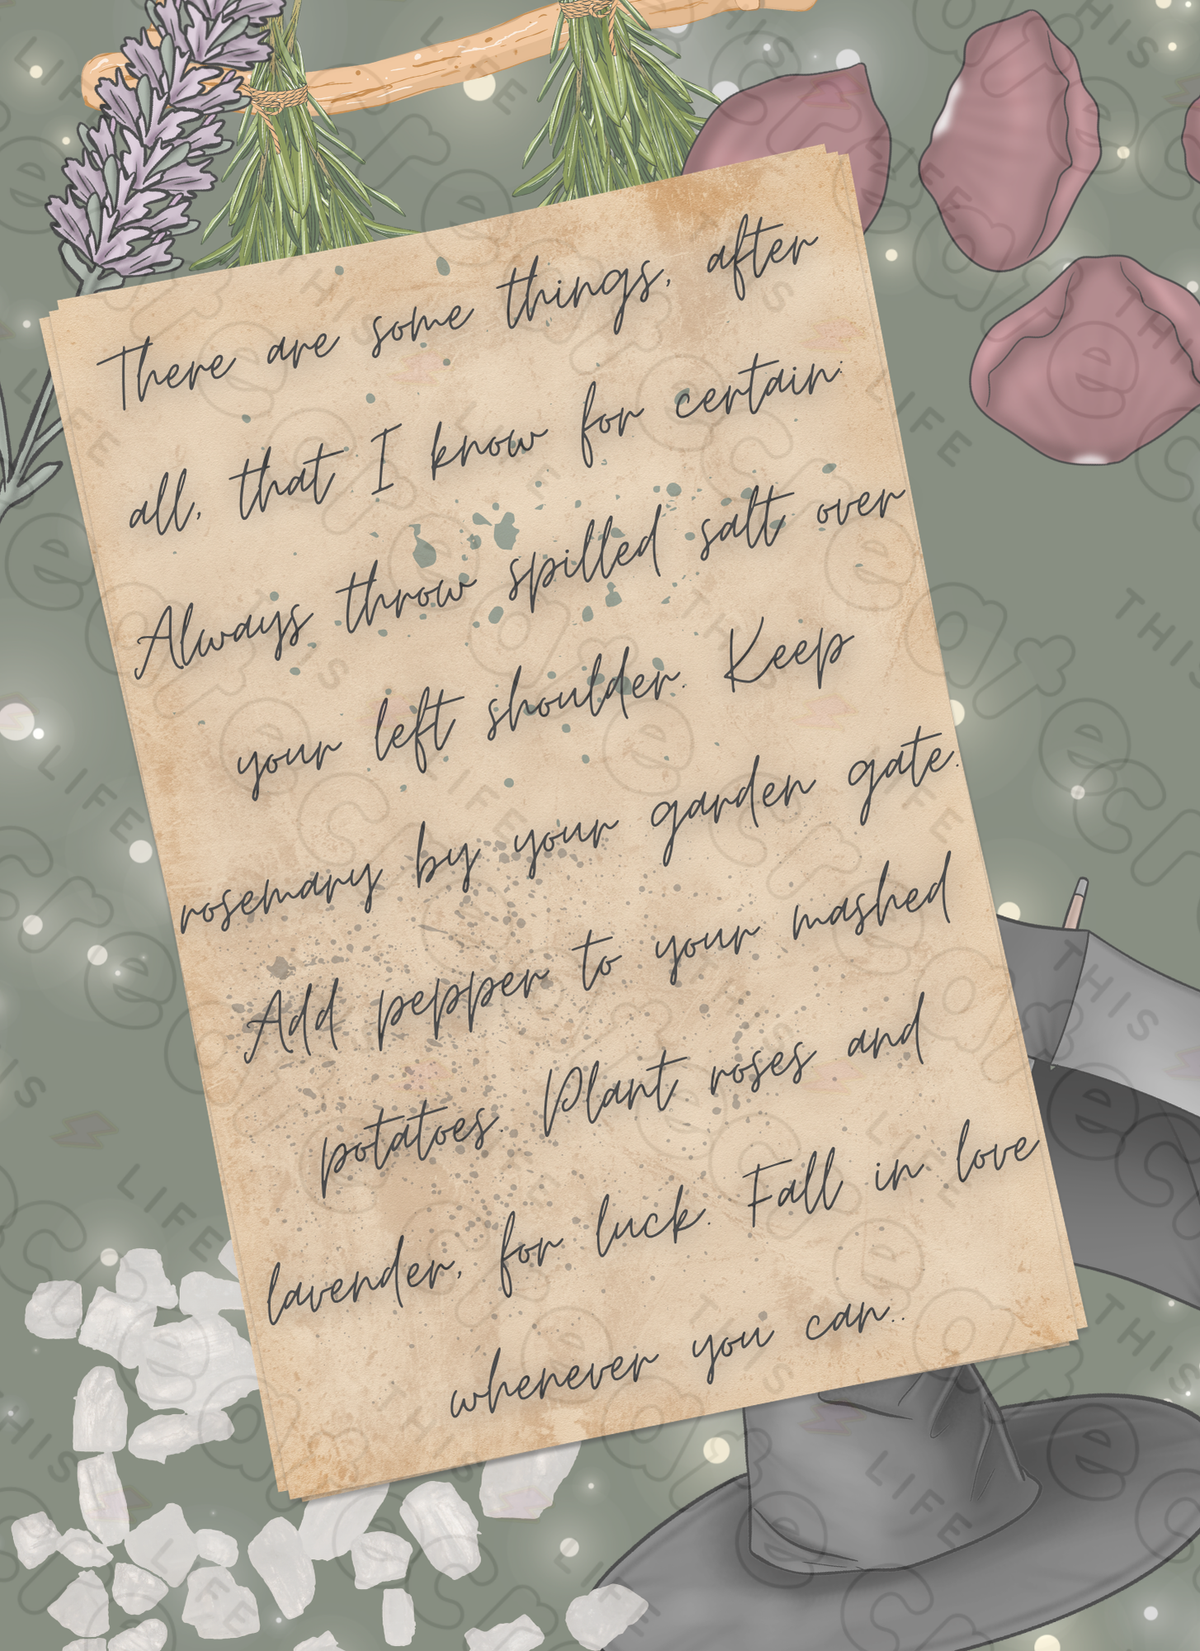 There are some things, after
all, that I know for certain:
Always throw spilled salt over
your left shoulder. Keep
rosemary by your garden gate.
Add pepper to your mashed
potatoes. Plant roses and
lavender, for luck. Fall in love
whenever you can..
recreate
THIS
LIFE